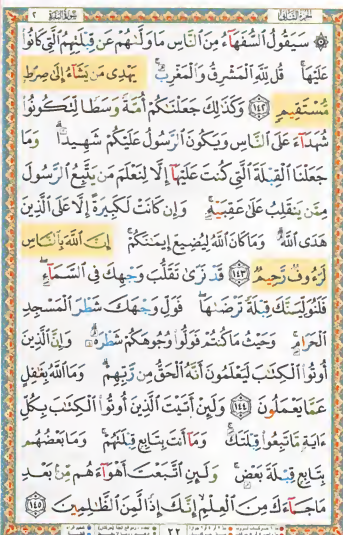 الجزء الثاني سورة البقرة ٢
۞ سَيَقُولُ السُّفَهَاءُ مِنَ النَّاسِ مَا وَلَّىٰهُمْ عَن قِبْلَتِهِمُ الَّتِي كَانُوا
عَلَيْهَا ۚ قُل لِّلَّهِ الْمَشْرِقُ وَالْمَغْرِبُ ۚ يَهْدِي مَن يَشَاءُ إِلَىٰ صِرَٰطٍ
مُّسْتَقِيمٍ ١٤٢ وَكَذَٰلِكَ جَعَلْنَٰكُمْ أُمَّةً وَسَطًا لِّتَكُونُوا
شُهَدَاءَ عَلَى النَّاسِ وَيَكُونَ الرَّسُولُ عَلَيْكُمْ شَهِيدًا ۗ وَمَا
جَعَلْنَا الْقِبْلَةَ الَّتِي كُنتَ عَلَيْهَا إِلَّا لِنَعْلَمَ مَن يَتَّبِعُ الرَّسُولَ
مِمَّن يَنقَلِبُ عَلَىٰ عَقِبَيْهِ ۚ وَإِن كَانَتْ لَكَبِيرَةً إِلَّا عَلَى الَّذِينَ
هَدَى اللَّهُ ۗ وَمَا كَانَ اللَّهُ لِيُضِيعَ إِيمَٰنَكُمْ ۚ إِنَّ اللَّهَ بِالنَّاسِ
لَرَءُوفٌ رَّحِيمٌ ١٤٣ قَدْ نَرَىٰ تَقَلُّبَ وَجْهِكَ فِي السَّمَاءِ ۖ
فَلَنُوَلِّيَنَّكَ قِبْلَةً تَرْضَىٰهَا ۚ فَوَلِّ وَجْهَكَ شَطْرَ الْمَسْجِدِ
الْحَرَامِ ۚ وَحَيْثُ مَا كُنتُمْ فَوَلُّوا وُجُوهَكُمْ شَطْرَهُ ۗ وَإِنَّ الَّذِينَ
أُوتُوا الْكِتَٰبَ لَيَعْلَمُونَ أَنَّهُ الْحَقُّ مِن رَّبِّهِمْ ۗ وَمَا اللَّهُ بِغَٰفِلٍ
عَمَّا يَعْمَلُونَ ١٤٤ وَلَئِنْ أَتَيْتَ الَّذِينَ أُوتُوا الْكِتَٰبَ بِكُلِّ
ءَايَةٍ مَّا تَبِعُوا قِبْلَتَكَ ۚ وَمَا أَنتَ بِتَابِعٍ قِبْلَتَهُمْ ۚ وَمَا بَعْضُهُم
بِتَابِعٍ قِبْلَةَ بَعْضٍ ۚ وَلَئِنِ اتَّبَعْتَ أَهْوَاءَهُم مِّن بَعْدِ
مَا جَاءَكَ مِنَ الْعِلْمِ ۙ إِنَّكَ إِذًا لَّمِنَ الظَّٰلِمِينَ ١٤٥
٢٢